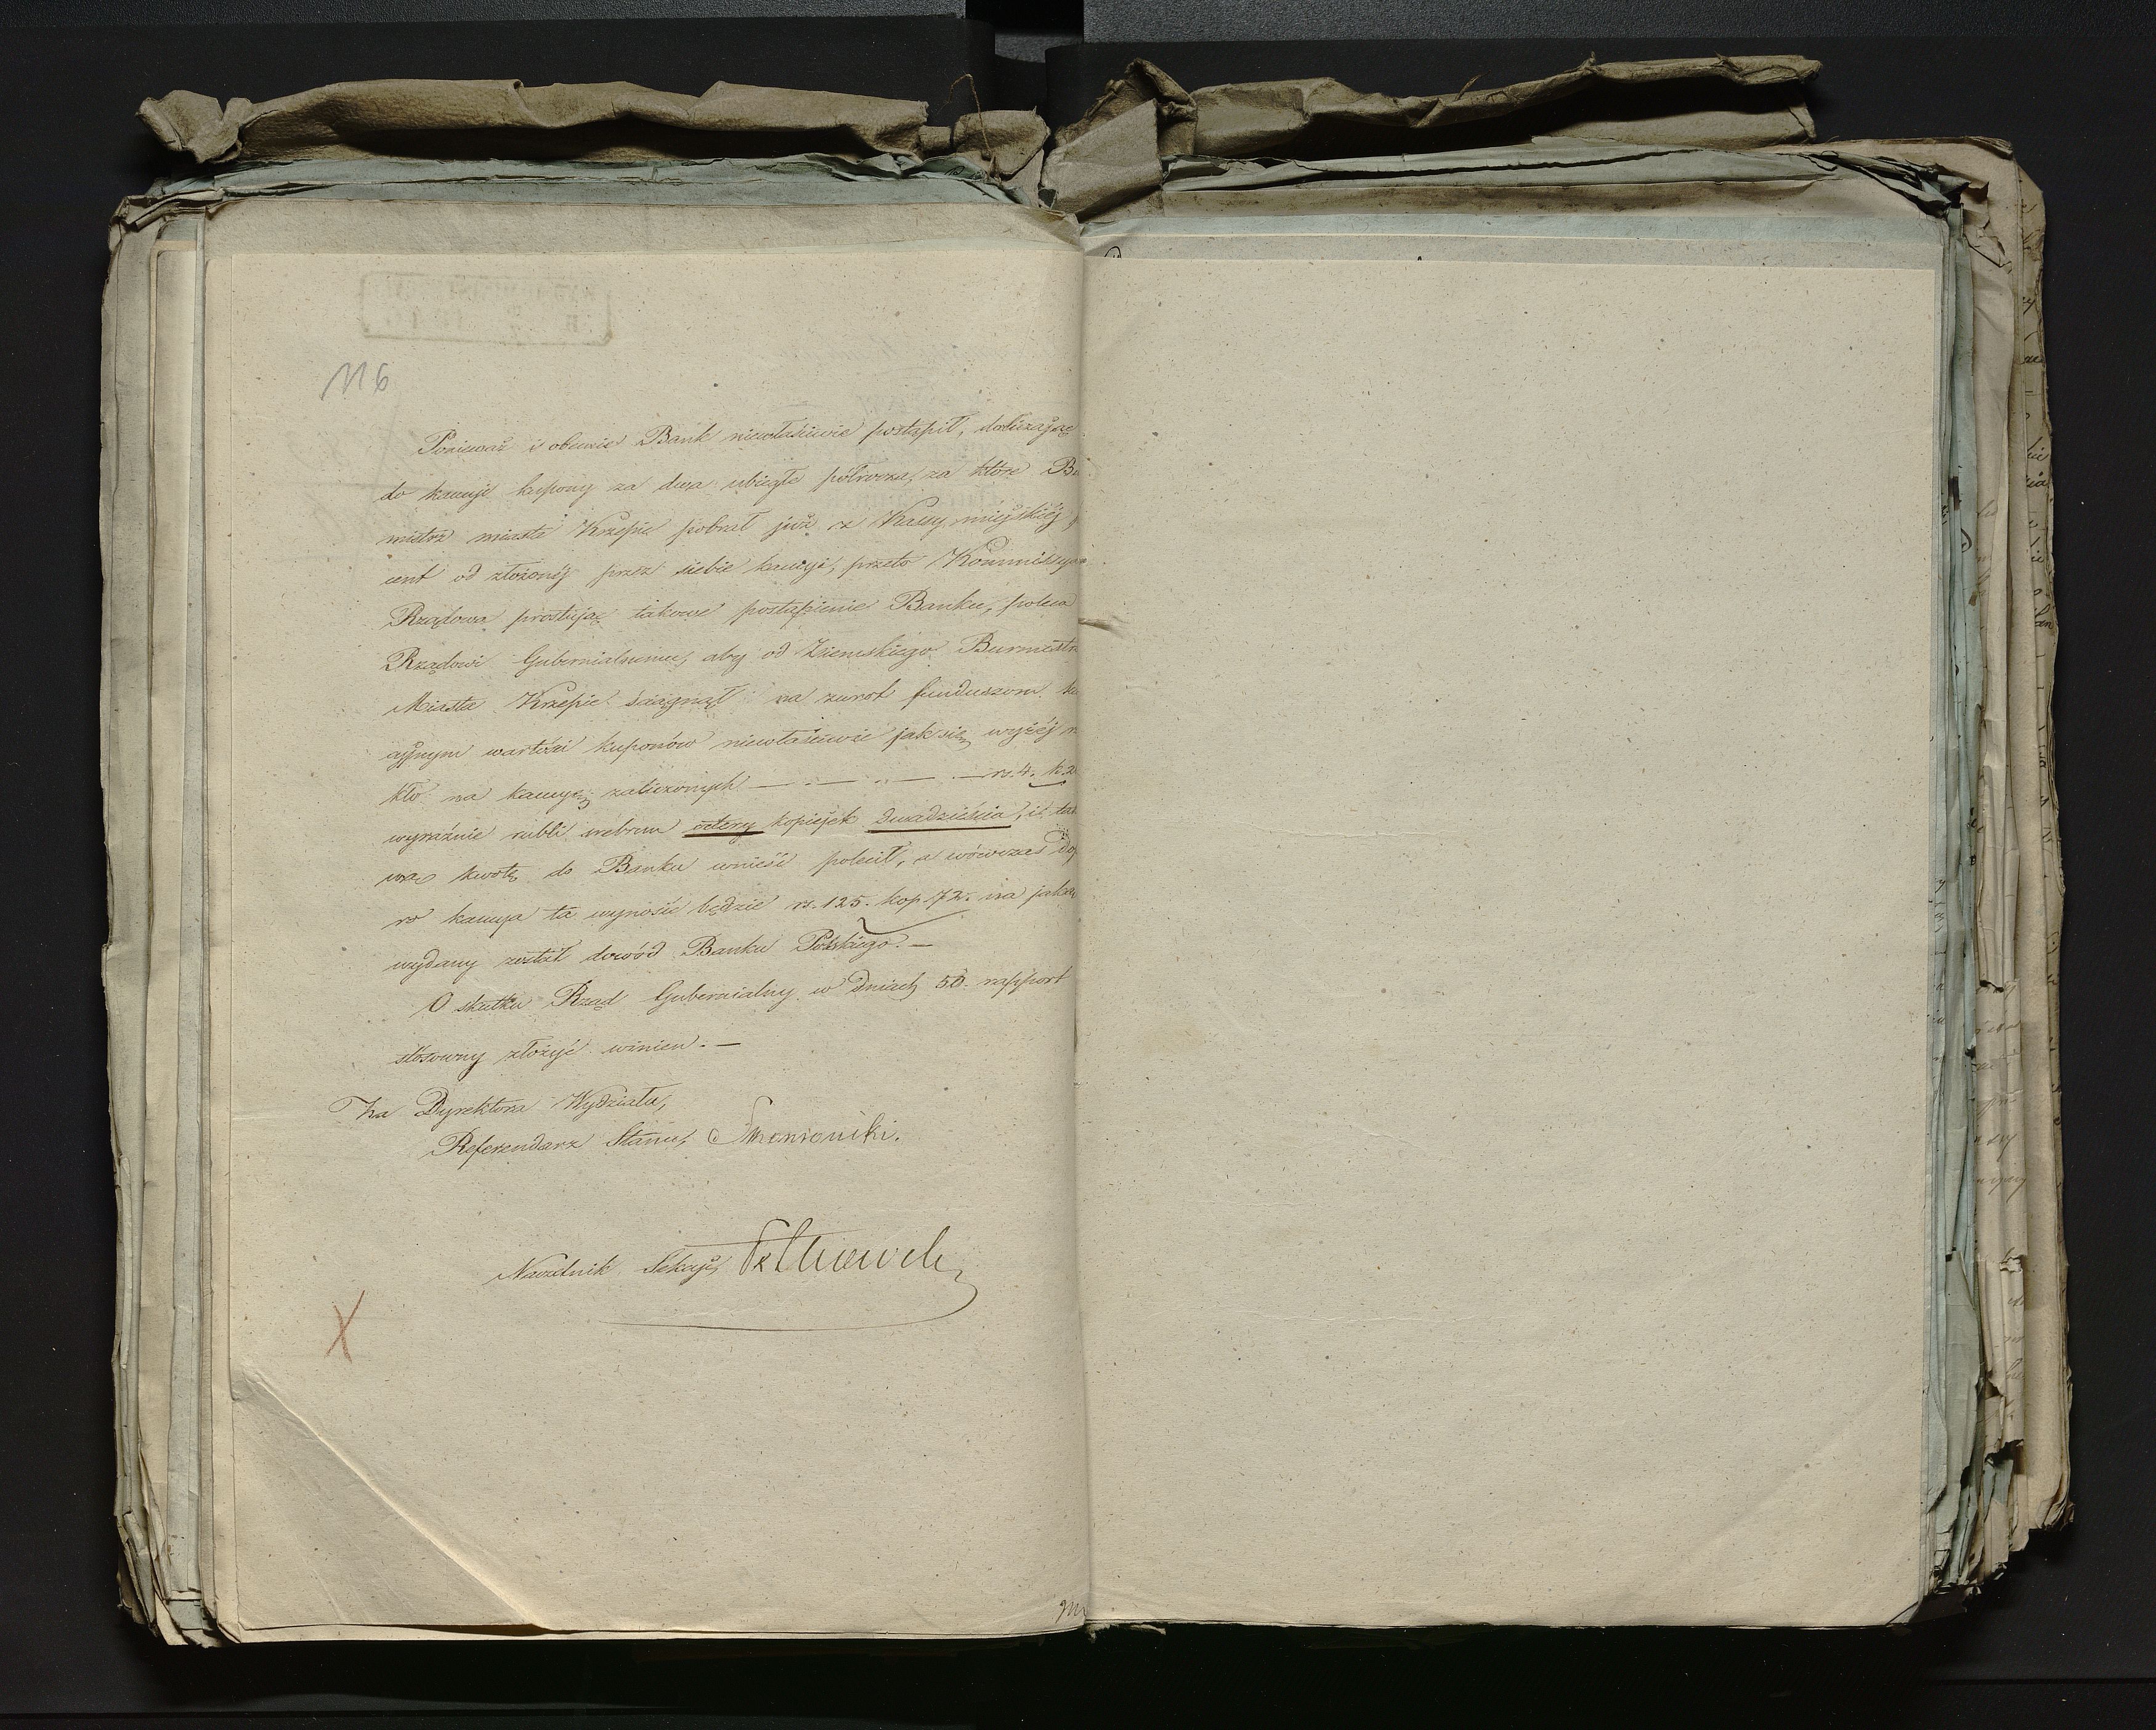 116
Ponieważ i obecnie Bank niewłaściwie postąpił, doliczając
do kaucyi kupony za dwa ubiegłe półrocza, za które Bu
mistrz miasta Krzepic pobrał już z Kassy miejskiéj
cent od złożonéj przez siebie kaucyi, przeto Kommissya
Rządowa prostując takowe postąpienie Banku, poleca
Rządowi Gubernialnemu, aby od Ziemskiego Burmistrz
Miasta Krzepic ściągnął na zwrot funduszom ka
cyjnym wartości kuponów niewłaściwie jak się wyżéj r
kło na kaucyę zaliczonych — rs. 4. k. 2
wyraźnie rubli srebrem cztery kopiejek dwadzieścia, i ta
wą kwotę do Banku wnieść polecił, a wówczas dop
ro kaucya ta wynosić będzie rs. 125. kop. 72. na jaką
wydany został dowód Banku Polskiego. —
O skutku Rząd Gubernialny w dniach 50. rapport
stosowny złożyć winien. —
Za Dyrektora Wydziału,
Referendarz Stanu,
Naczelnik Sekcyi,